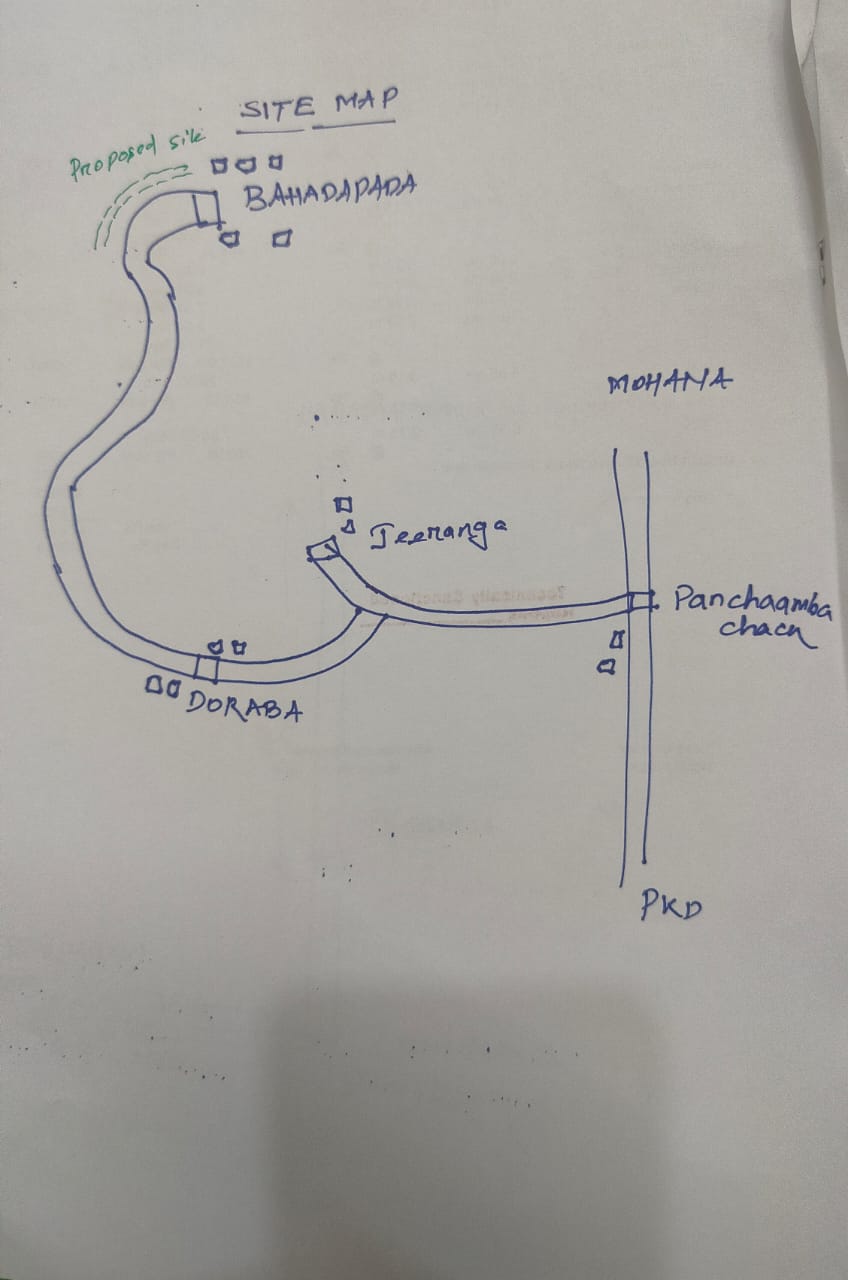 SITE MAP
Proposed site
BAHADAPADA
MOHANA
Jeeranga
Panchaamba
chack
DORABA
PKD